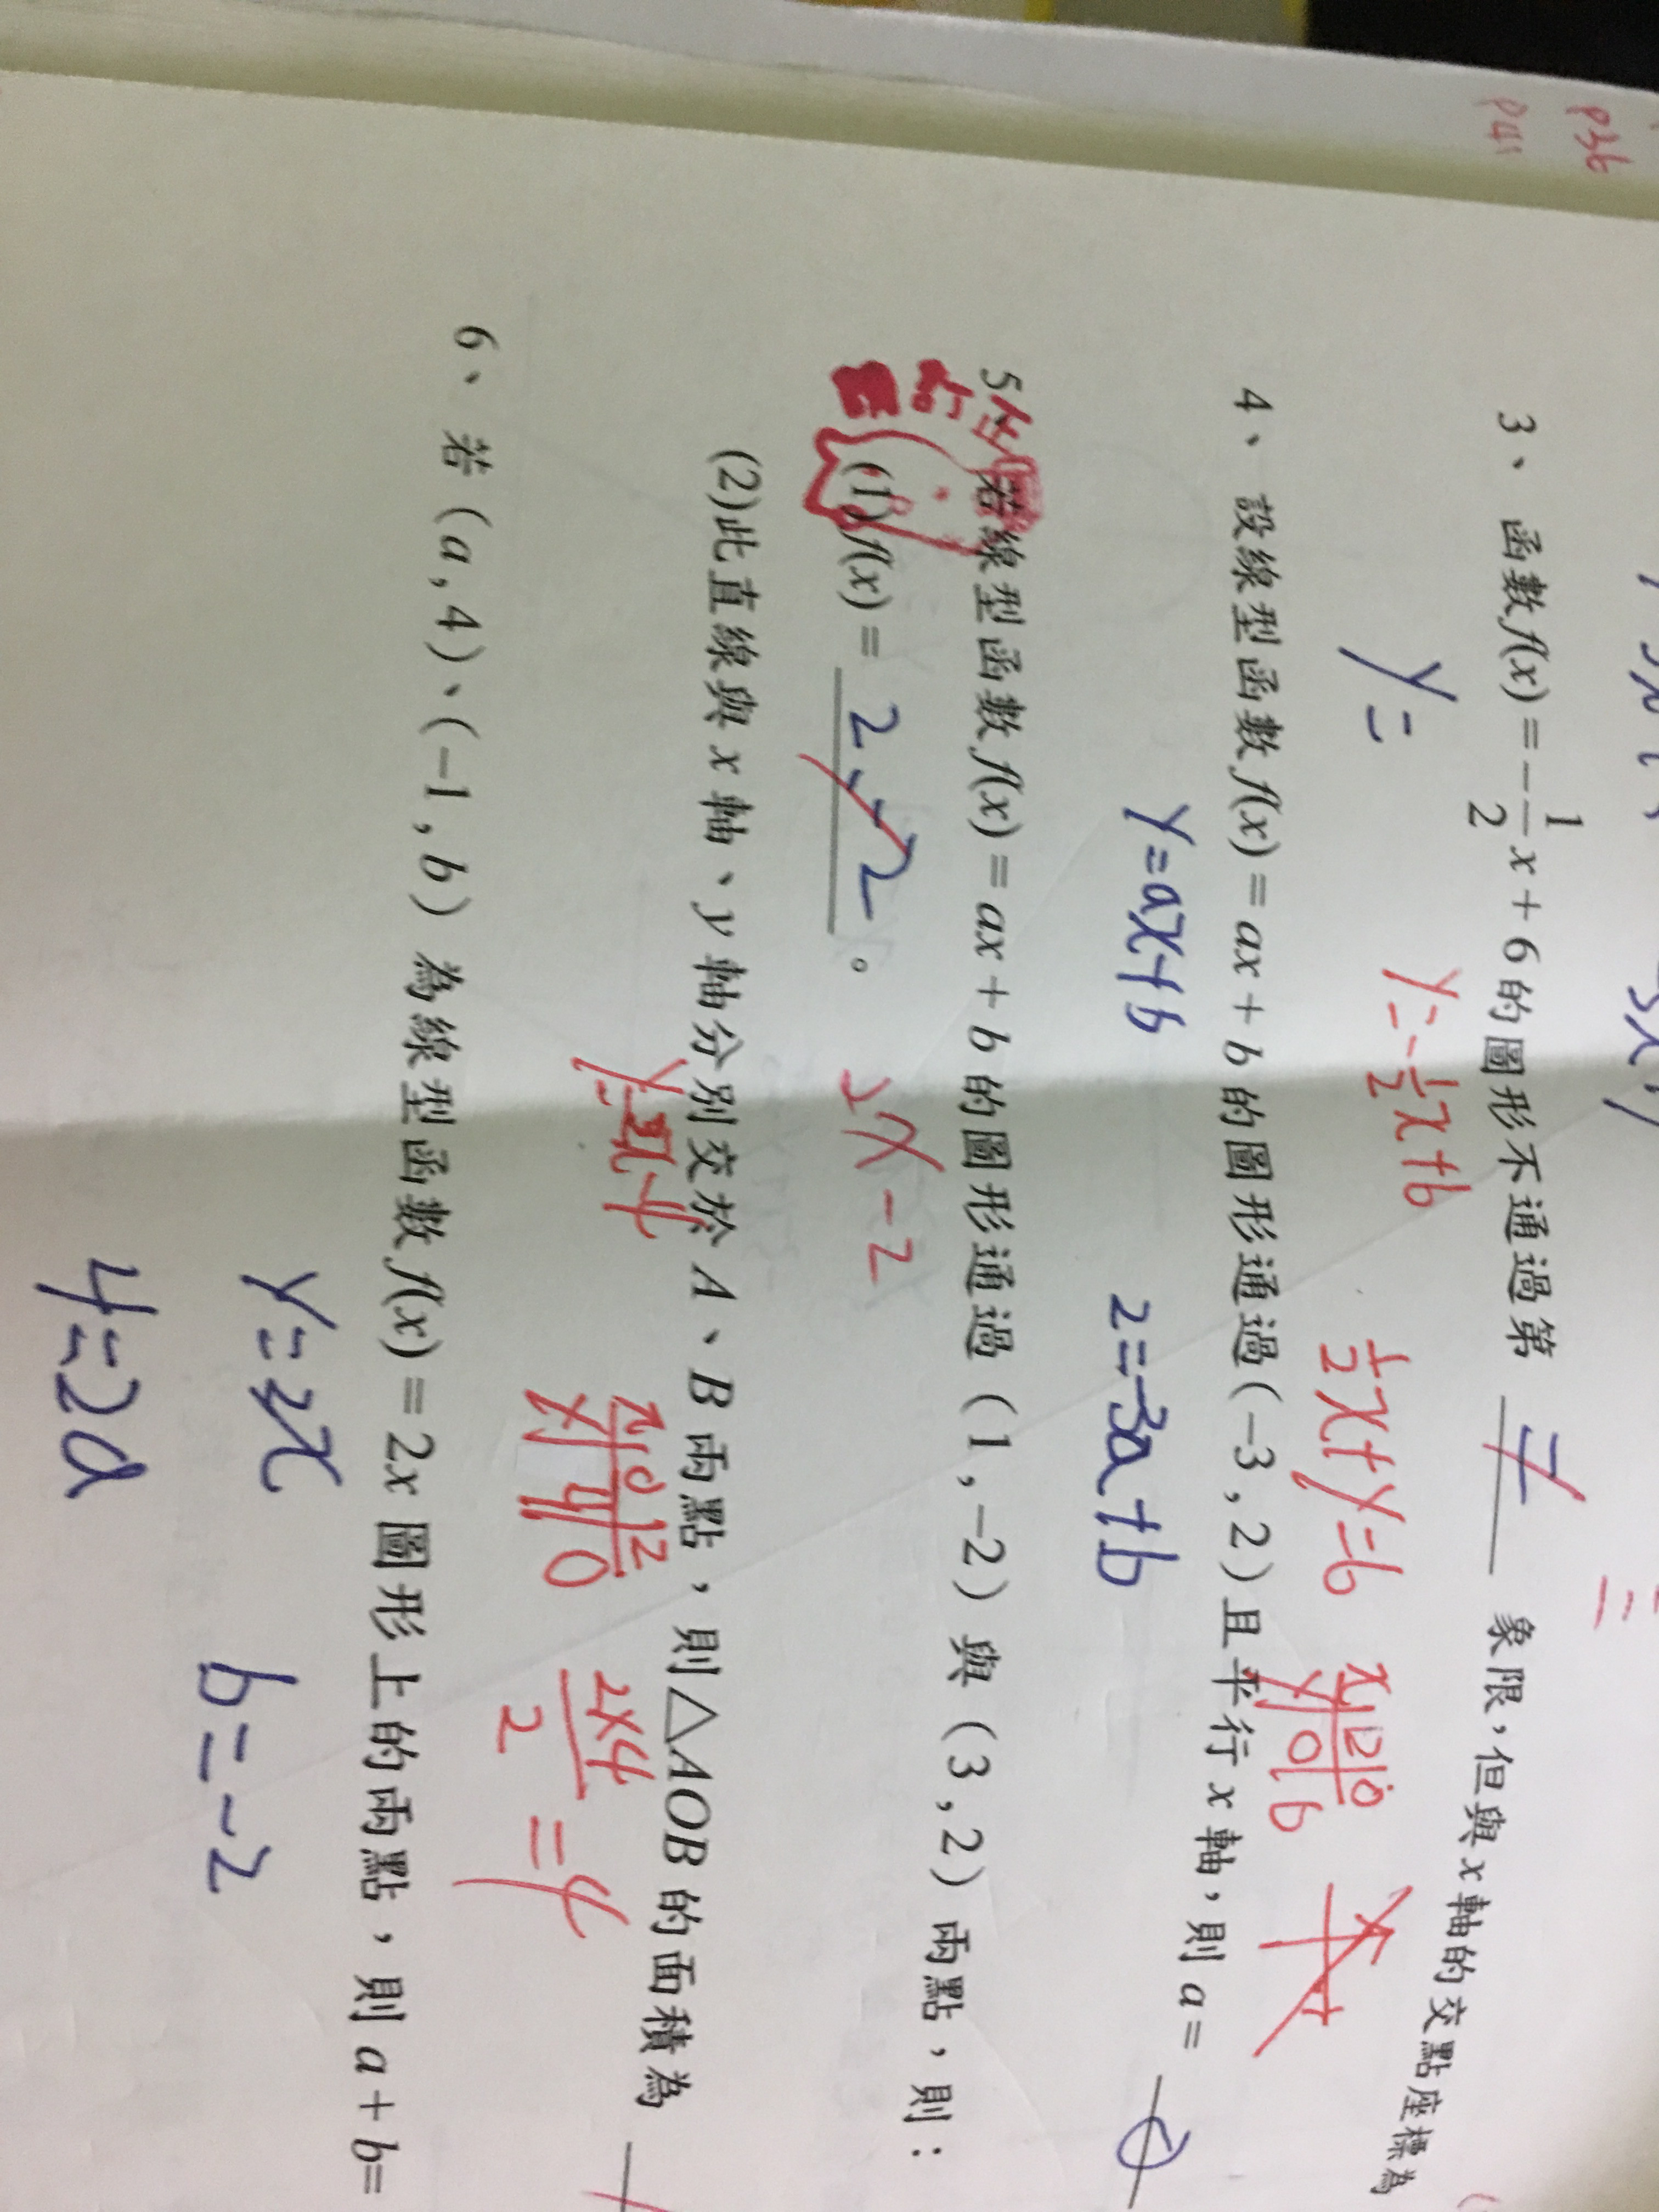 P36
P41
3、函數f(x)=-1/2x+6的圖形不通過第 象限,但與x軸的交點座標為
y=
y=-1/2x+6
1/2x+y=6
x 12 0
y 0 6
4、設線型函數f(x)=ax+b的圖形通過(-3,2)且平行x軸,則a= 0
y=ax+b
2=-3a+b
5、若線型函數f(x)=ax+b的圖形通過(1,-2)與(3,2)兩點,則:
(1)f(x)= 2、-2。
2x-2
(2)此直線與x軸、y軸分別交於A、B兩點,則△AOB的面積為
y=2x-4
x 0 2
y -4 0
2×4/2=4
6、若(a,4)、(-1,b)為線型函數f(x)=2x圖形上的兩點,則a+b=
y=2x
b=-2
4=2a